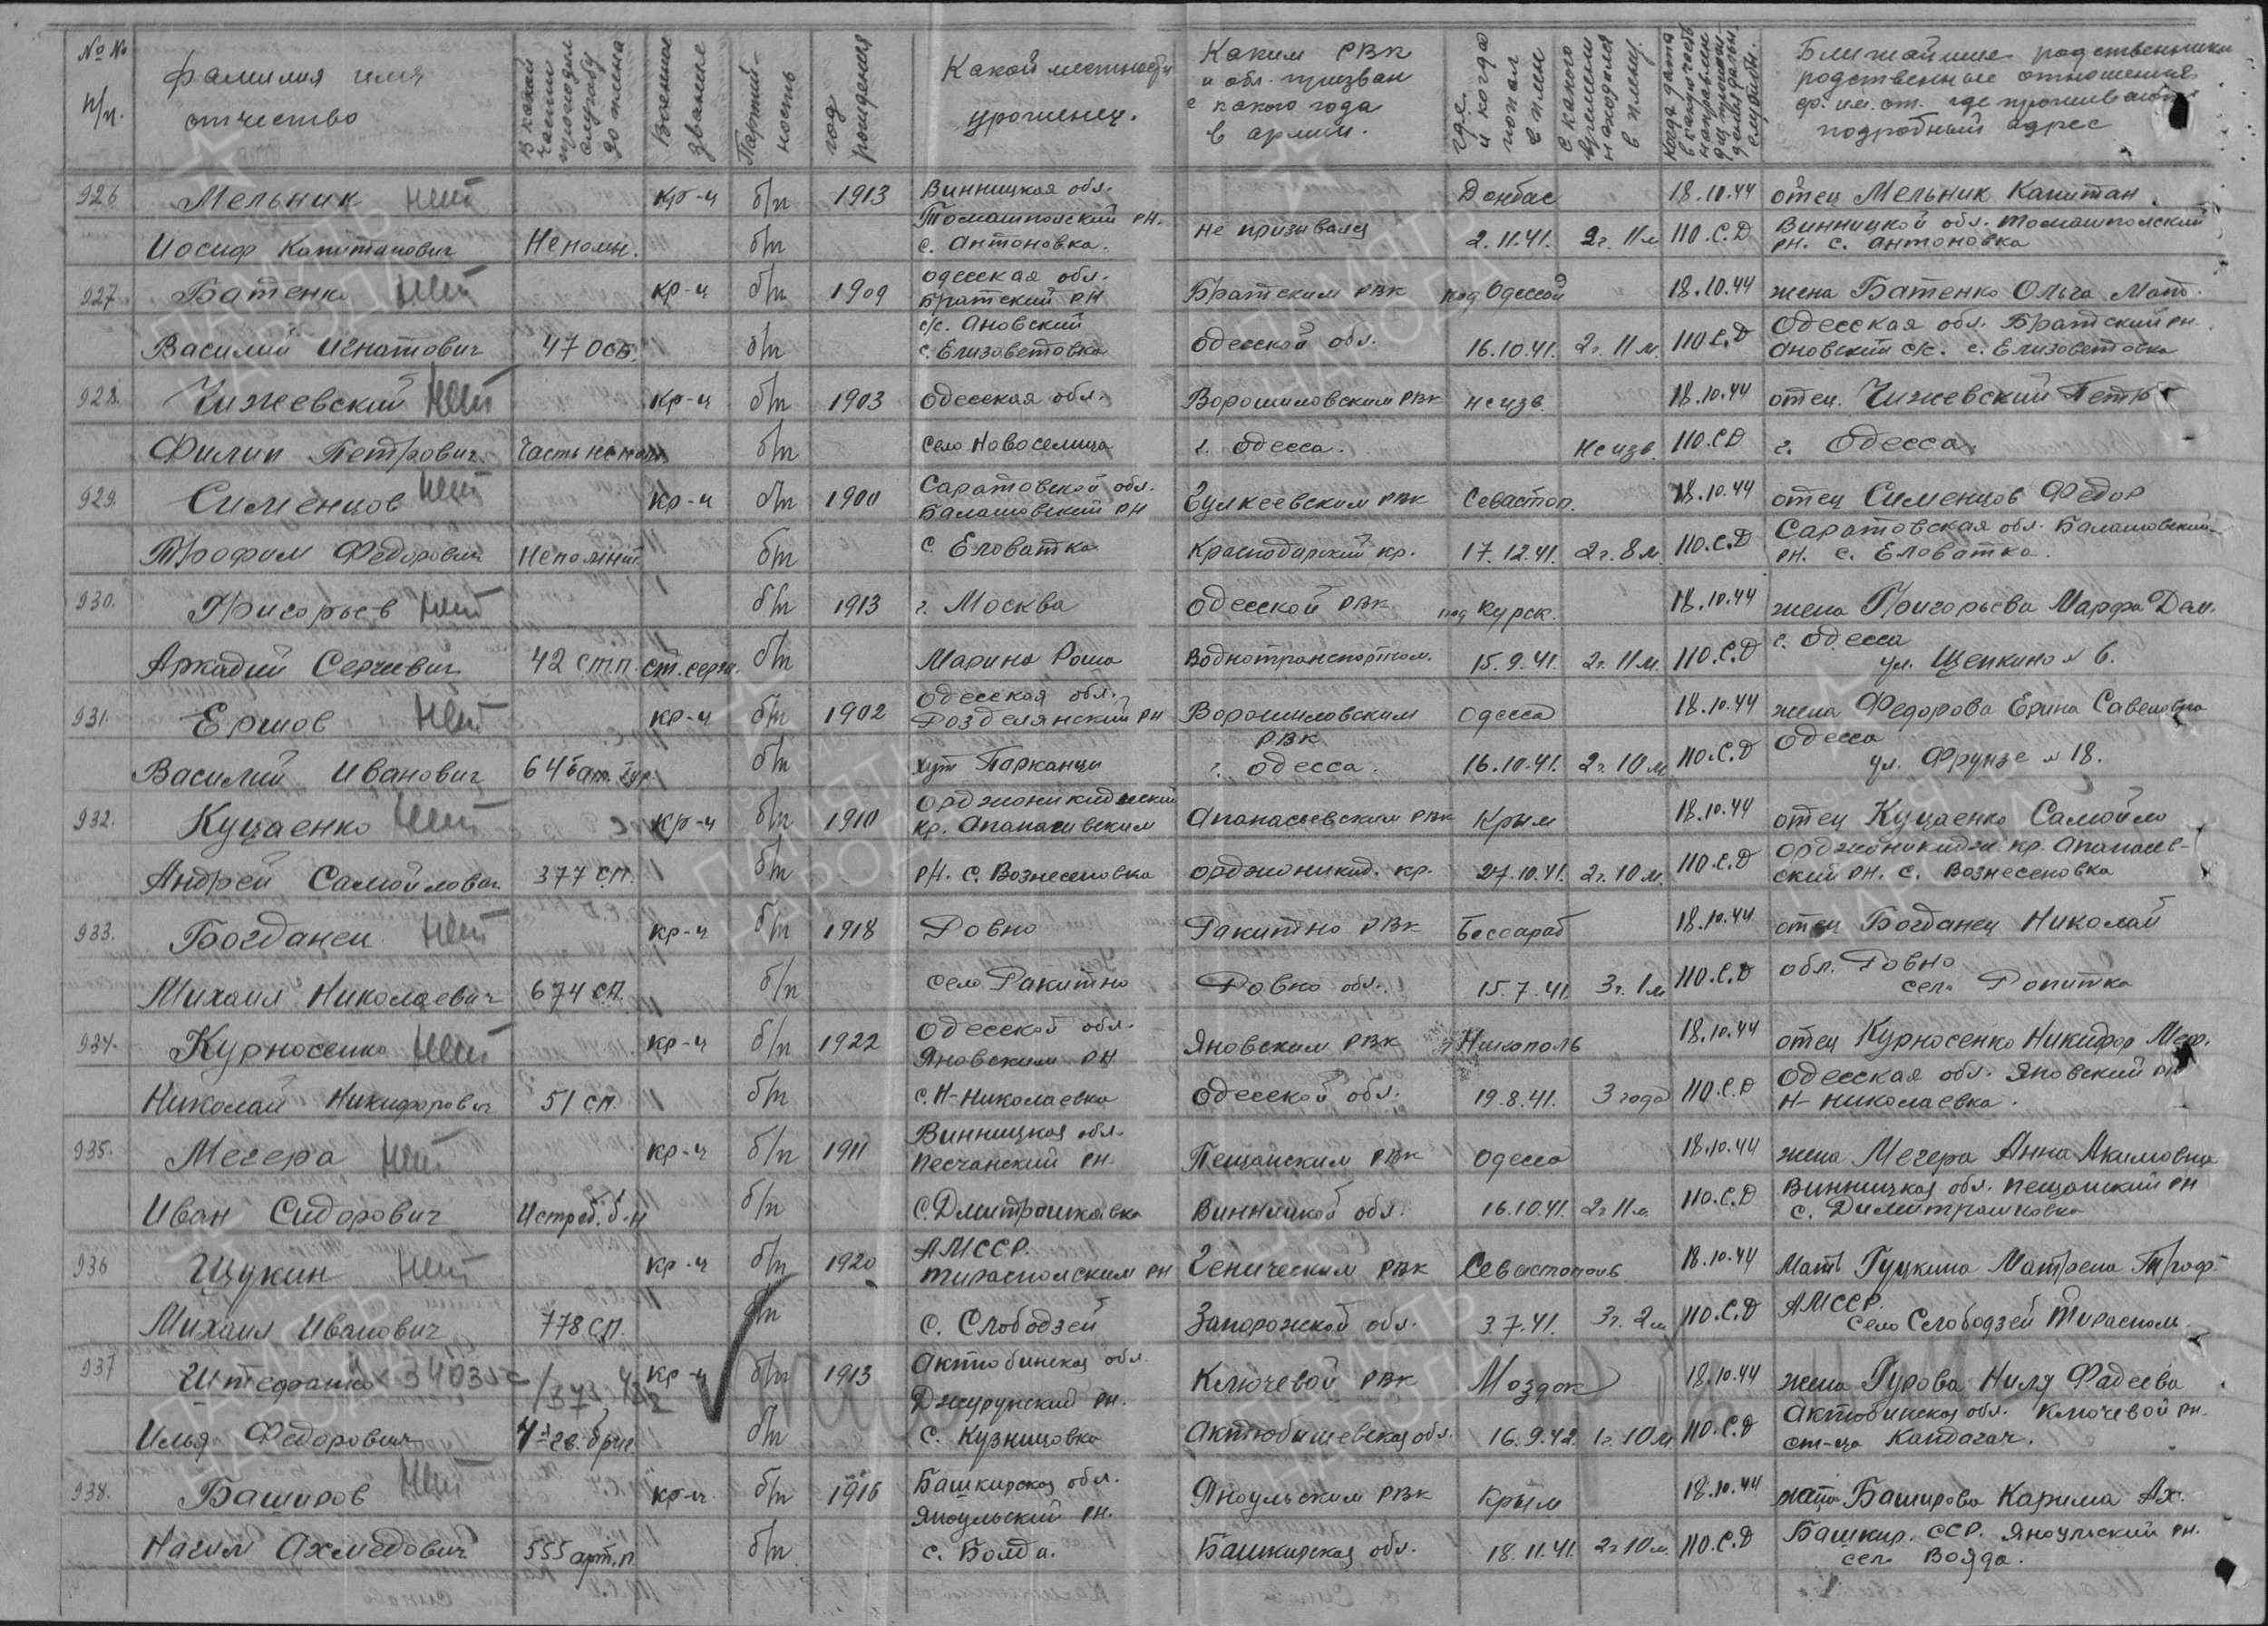 № № п/п.
фамилия имя отчество
В какой части проходил службу до плена
Военное звание
Партийность
год рождения
Какой местности уроженец.
Каким РВК и обл. призван с какого года в армии.
где и когда попал в плен
С какого времени находился в плену.
Ближайшие родственники родственные отношения ф. им. от. где проживают подробный адрес
926 Мельник нет кр-ц б/п 1913 Винницкая обл. Донбас 18.10.44 отец Мельник Капитан
Томашпольский РН. не призывался Винницкой обл. Томашпольский
Иосиф Капитанович Не помн. б/п с. Антоновка. 2.11.41. 2г. 11м 110.С.Д РН. с. Антоновка
927 Батенко нет кр-ц б/п 1909 Одесская обл. Братский РН Братским РВК под Одессой 18.10.44 жена Батенко Ольга
с/с. Ановский Одесская обл. Братский РН
Василий Игнатович 47 ОСБ. б/п с. Елизоветовка Одесской обл. 16.10.41. 2г. 11м. 110.С.Д Ановский с/с. с. Елизоветовка
928. Чижевский нет кр-ц б/п 1903 Одесская обл. Ворошиловским РВК неизв 18.10.44 отец. Чижевский Петр
Филип Петрович Часть не помн б/п Село Новоселица г. Одесса. Неизв. 110.СД г. Одесса
929. Сименцов нет кр-ц б/п 1900 Саратовской обл. Балашовский РН Гулкеевским РВК Севастоп. 18.10.44 отец Сименцов Федор
Саратовская обл. Балашовский
Трофим Федорович Непомнит б/п с. Еловатка Краснодарский кр. 17.12.41. 2г. 8м. 110.С.Д РН. с. Еловатка.
930. Григорьев нет б/п 1913 г. Москва Одесской РВК под Курск. 18.10.44 жена Григорьева Марфа Дан.
г. Одесса
Аркадий Сергиевич 42 стп. ст. серж. б/п Марина Роша Воднотранспортном. 15.9.41. 2г. 11м. 110.С.Д ул. Щепкино № 6.
931. Ершов нет кр-ц б/п 1902 Одесская обл. Розделянский РН Ворошиловским РВК Одесса 18.10.44 жена Федорова Ерина Савеловна
Одесса
Василий Иванович 64 бат. б/п хут Парканци г. Одесса. 16.10.41. 2г. 10м. 110.С.Д ул. Фрунзе № 18.
932. Куцаенко нет кр-ц б/п 1910 Орджоникидзеский кр. Апанасивским Апанасьевским РВК Крым 18.10.44 отец Куцаенко Самойло
Орджоникидзе кр. Апанасев-
Андрей Самойлович 377 сп. б/п РН. с. Вознесеновка Орджоникид. кр. 27.10.41. 2г. 10м. 110.С.Д ский РН. с. Вознесеновка
933. Богданец нет кр-ц б/п 1918 Ровно Ракитно РВК Бессараб 18.10.44 отец Богданец Николай
обл. Ровно
Михаил Николаевич 674 сп. б/п село Ракитно Ровно обл. 15.7.41 3г. 1м 110.С.Д село Ропитка
934. Курносенко нет кр-ц б/п 1922 Одесской обл. Яновским РН Яновским РВК г Никополь 18.10.44 отец Курносенко Никифор
Одесская обл. Яновский РН
Николай Никифорович 51 сп. б/п с. Н-Николаевка Одесской обл. 19.8.41. 3 года 110.С.Д Н-Николаевка.
935. Мегера нет кр-ц б/п 1911 Винницкая обл. Песчанский РН. Пещанским РВК Одесса 18.10.44 жена Мегера Анна Акимовна
Винницкая обл. Пещанский РН
Иван Сидорович Истреб. б-н б/п с. Дмитрашковка Винницкой обл. 16.10.41. 2г 11м 110.С.Д с. Димитрашковка
936 Щукин нет кр-ц б/п 1920 АМССР. Тираспольским РН Геническим РВК Севастополь 18.10.44 Мать Гуцкина Матрена Троф.
АМССР.
Михаил Иванович 778 сп. б/п с. Слободзей Запорожской обл. 3.7.41. 3г. 2м 110.С.Д село Слободзей Тирасполь.
937 Штефанко кр-ц б/п 1913 Актюбинская обл. Ключевой РВК Моздок 18.10.44 жена Гурова Ниля Фадеева
Джурунский РН. Актюбинская обл. Ключевой РН.
Илья Федорович б/п с. Кузнцовка Актюбишевская обл. 16.9.42. 1г. 10м 110.С.Д ст-ца Кандагач.
938. Баширов нет кр-ц. б/п 1916 Башкирская обл. Яноульский РН. Яноульским РВК Крым 18.10.44 Баширова Карима Ах.
Башкир. ССР. Яноульский РН.
Нагим Ахмедович 555 арт.п б/п с. Болда. Башкирская обл. 18.11.41. 2г 10м. 110.С.Д село Вояда.
ПАМЯТЬ НАРОДА